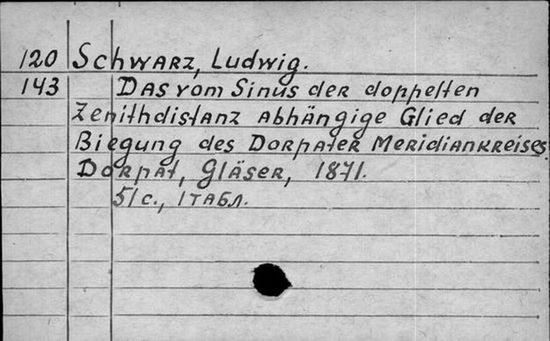 120 Schwarz, Ludwig.
143 Das vom Sinus der doppelten
Zenithdistanz abhängige Glied der
Biegung des Dorpater Meridiankreises
Dorpat, Gläser, 1871.
51 с., 1 табл.